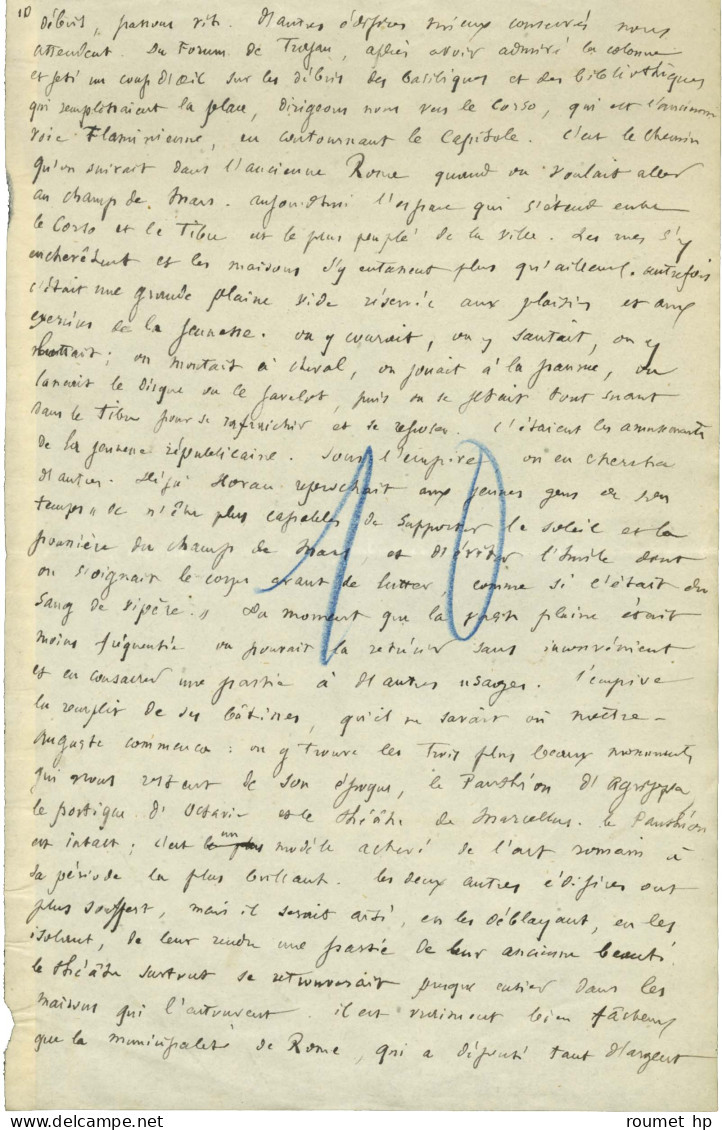 10
débris, passons vite. D'autres édifices mieux conservés nous
attendent. Du Forum de Trajan, après avoir admiré la colonne
et jeté un coup d'œil sur les débris des basiliques et des bibliothèques
qui remplissaient la place, dirigeons nous vers le Corso, qui est l'ancienne
voie Flaminienne, en contournant le Capitole. C'est le chemin
qu'on suivait dans l'ancienne Rome quand on voulait aller
au champ de Mars. Aujourd'hui l'espace qui s'étend entre
le Corso et le Tibre est le plus peuplé de la ville. Les rues s'y
enchevêtrent et les maisons s'y entassent plus qu'ailleurs. autrefois
c'était une grande plaine vide réservée aux plaisirs et aux
exercices de la jeunesse. on y courait, on y sautait, on y
luttait ; on montait à cheval, on jouait à la paume, on
lançait le disque ou le javelot, puis on se jetait tout suant
dans le Tibre pour se rafraichir et se reposer. C'étaient les amusements
de la jeunesse républicaine. Sous l'empire on en chercha
d'autres. Déjà Horace reprochait aux jeunes gens de son
temps " de n'être plus capables de supporter le soleil et la
poussière du champ de Mars, et d'éviter l'huile dont
on soignait le corps avant de lutter, comme si c'était du
sang de vipère. " Du moment que la vaste plaine était
moins fréquentée on pouvait la rétrécir sans inconvénient
et en consacrer une partie à d'autres usages. L'empire
la remplit de ses bâtisses, qu'il ne savait où mettre.
Auguste commença : on y trouve les trois plus beaux monuments
qui nous restent de son époque, le Panthéon d'Agrippa,
le portique d'Octavie et le théâtre de Marcellus. le Panthéon
est intact ; c'est un modèle achevé de l'art romain à
sa période la plus brillante. les deux autres édifices ont
plus souffert, mais il serait aisé, en les déblayant, en les
isolant, de leur rendre une partie de leur ancienne beauté.
le théâtre surtout se retrouverait presque entier dans les
maisons qui l'entourent. il est vraiment bien fâcheux
que la municipalité de Rome, qui a dépensé tant d'argent
10
roumet hp